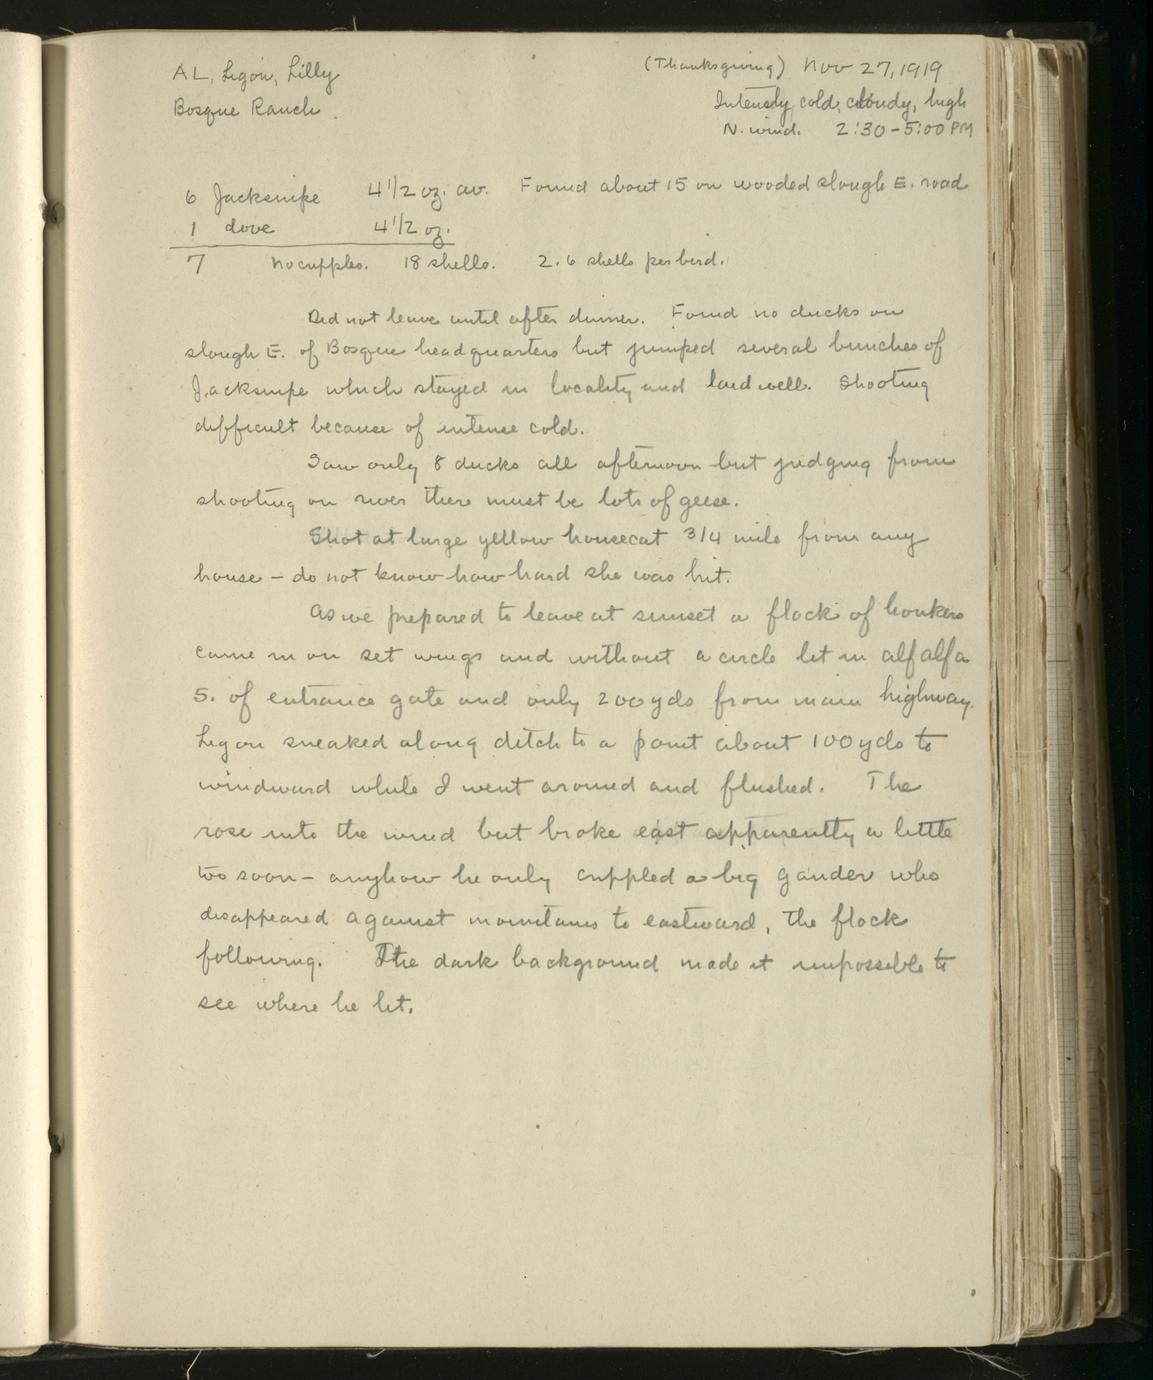 AL, Ligon, Lilly
(Thanksgiving) Nov 27, 1919
Bosque Ranch.
Intensely cold, cloudy, high
N. wind. 2:30-5:00 PM
6 Jacksnipe 4 1/2 oz. av. Found about 15 on wooded slough E. road
1 dove 4 1/2 oz.
7 No cripples. 18 shells. 2.6 shells per bird.
Did not leave until after dinner. Found no ducks on
slough E. of Bosque headquarters but jumped several bunches of
Jacksnipe which stayed in locality and laid well. Shooting
difficult because of intense cold.
Saw only 8 ducks all afternoon but judging from
shooting on river there must be lots of geese.
Shot at large yellow housecat 3/4 mile from any
house - do not know how hard she was hit.
As we prepared to leave at sunset a flock of honkers
came in on set wings and without a circle lit in alfalfa
S. of entrance gate and only 200 yds from main highway.
Ligon sneaked along ditch to a point about 100 yds to
windward while I went around and flushed. The
rose into the wind but broke east apparently a little
too soon - anyhow he only crippled a big gander who
disappeared against mountains to eastward, the flock
following. The dark background made it impossible to
see where he lit.